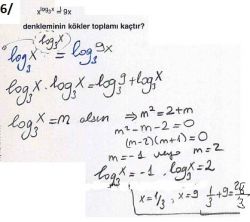 6/ x^log₃x = 9x
denkleminin kökler toplamı kaçtır?
log₃x^log₃x = log₃9x
log₃x . log₃x = log₃9 + log₃x
log₃x = m olsun ⇒ m² = 2+m
m² - m - 2 = 0
(m-2)(m+1) = 0
m = -1 veya m = 2
log₃x = -1 . log₃x = 2
x = 1/3 ; x = 9 1/3 + 9 = 28/3